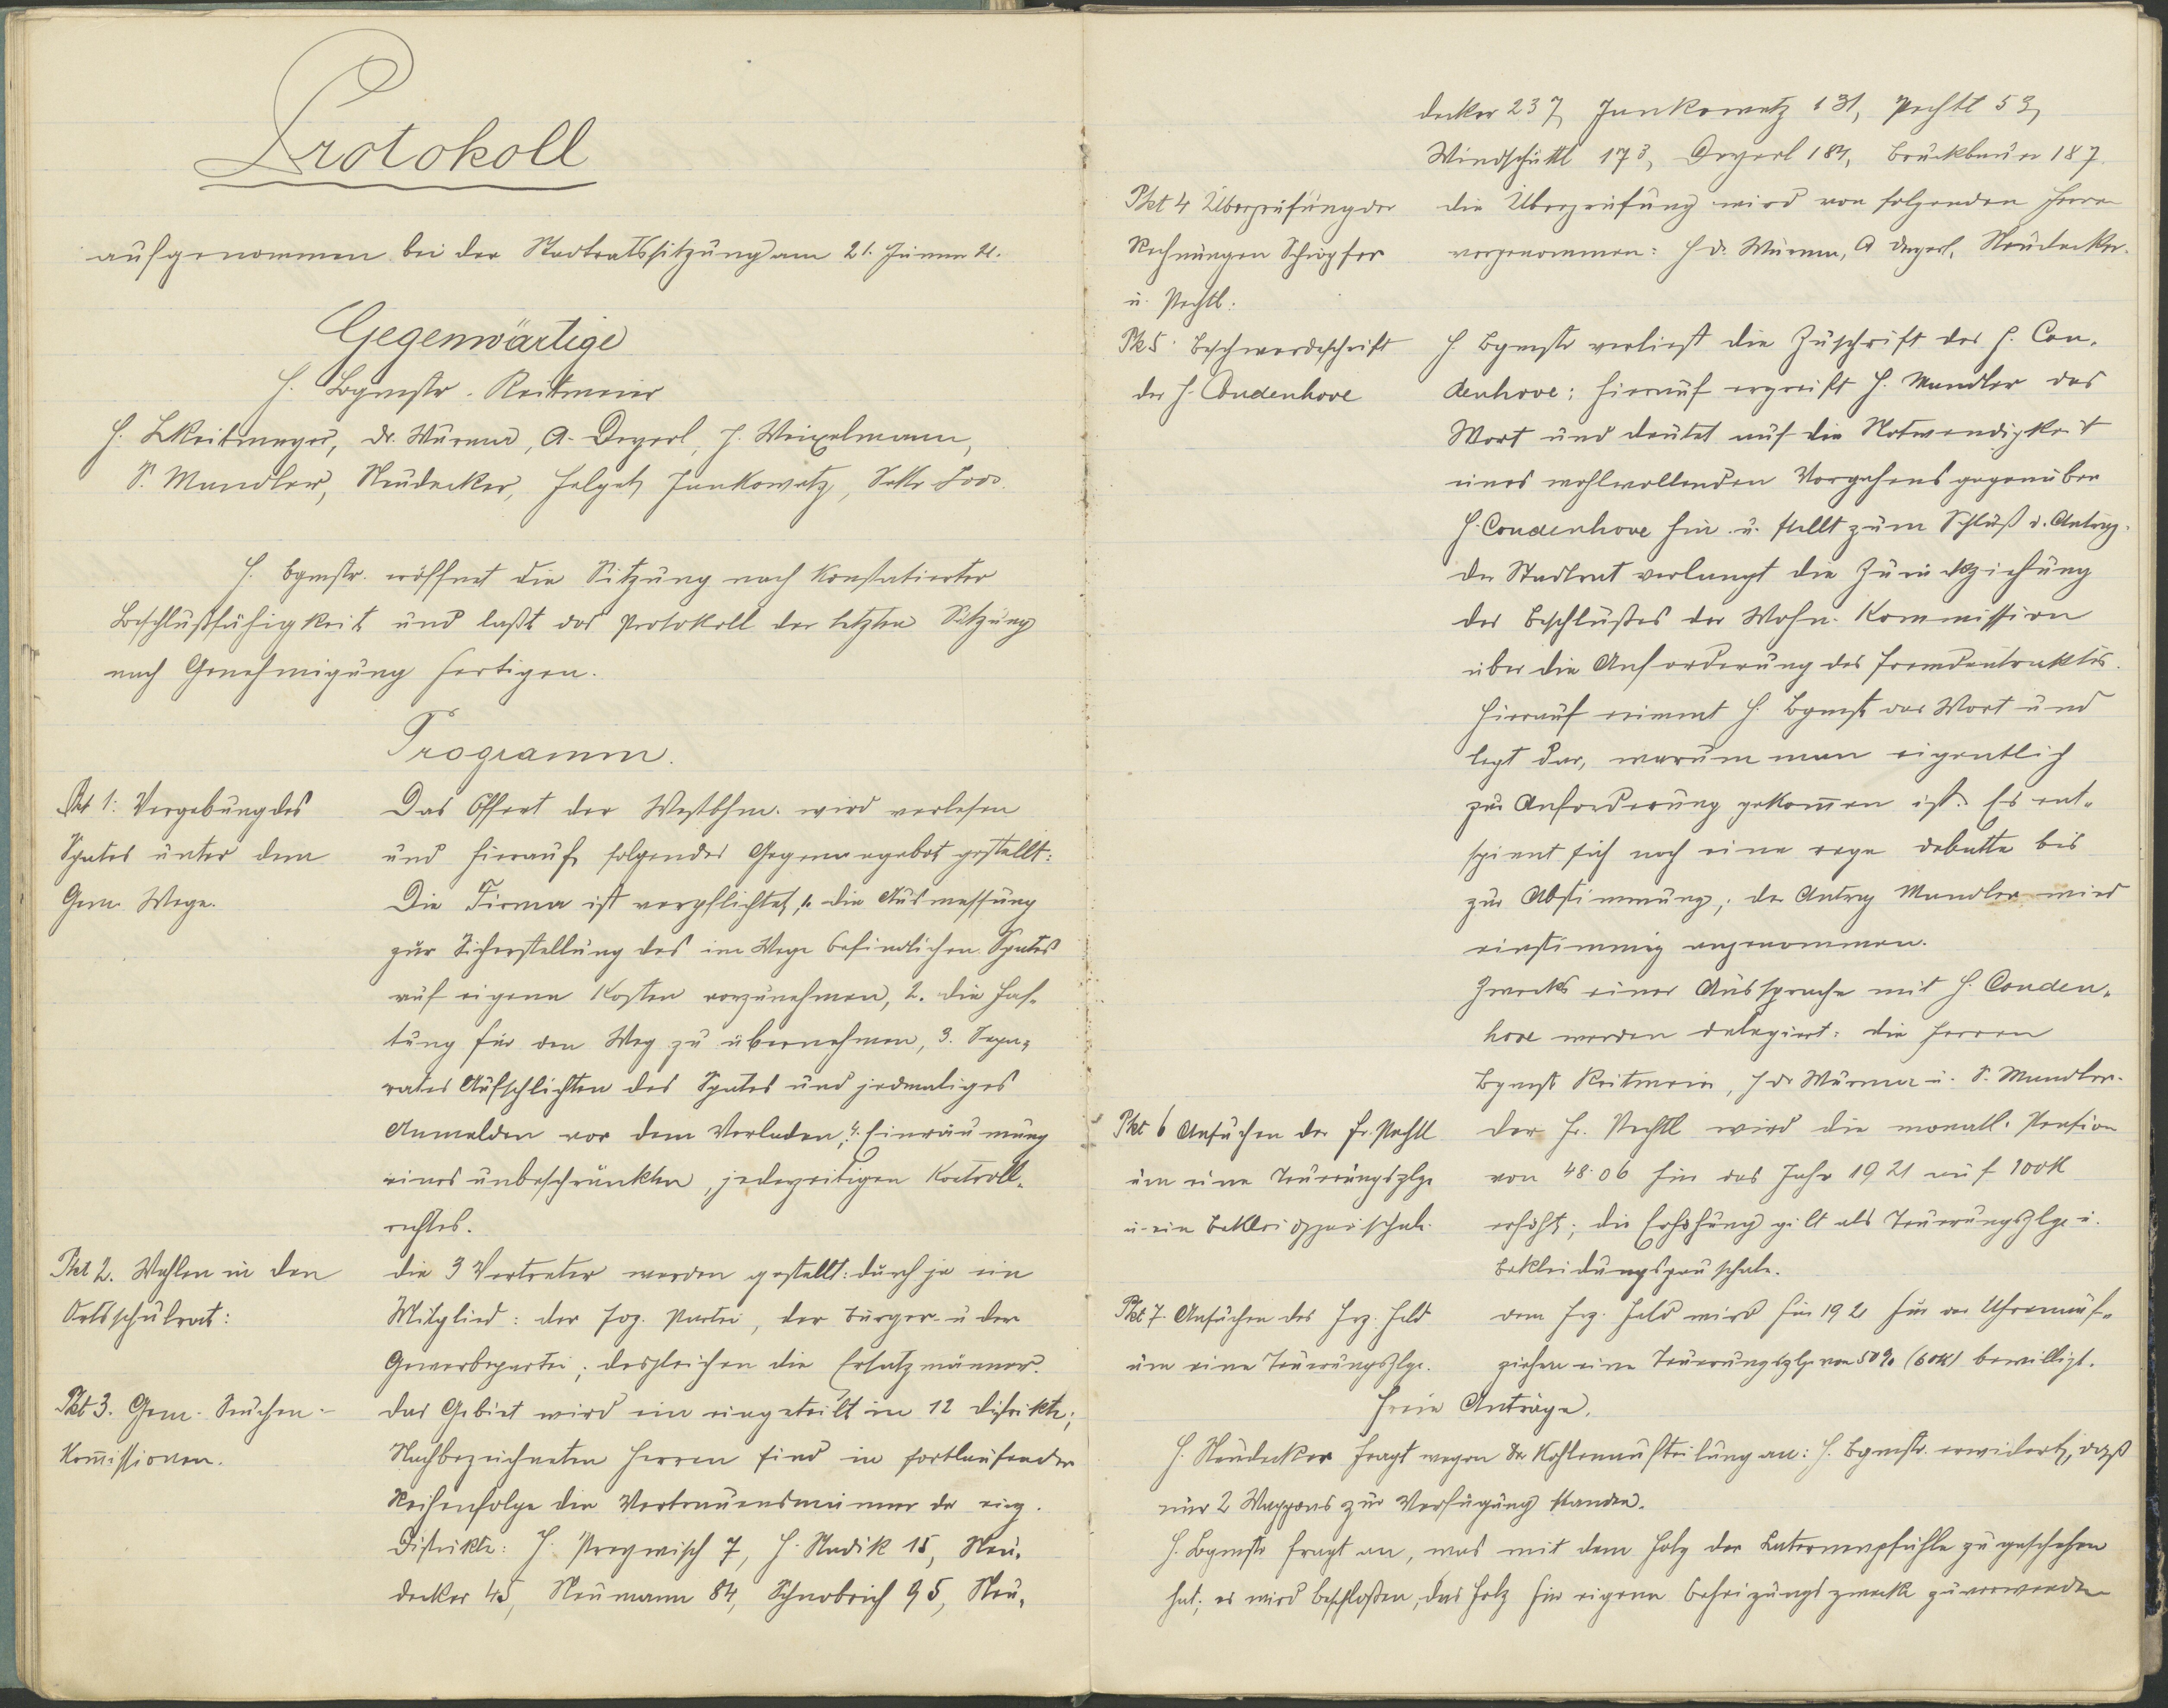 Protokoll
aufgenommen bei der Stadtratssitzung am 21. Jänner 21.
Gegenwärtige
H. Bgmstr. Reitmeier
H. Dr. Wurma, A. Deyerl, H. Weixelmann,
S. Mandler, Neudecker, Jankowetz, Sekr Loos.
H. Bgmstr. eröffnet die Sitzung nach konstatierter
Beschlußfähigkeit und laßt das Protokoll der letzten Sitzung
nach Genehmigung fertigen.
Programm.
Pkt 1: Vergebung des
Spates unter dem
Gem. Wege.
Das Offert der Westbhm. wird verlesen
und hierauf folgendes Gegenangebot gestellt:
Die Firma ist verpflichtet, 1. die Ausmessung
zur Sicherstellung des im Wege befindlichen Spates
auf eigene Kosten vorzunehmen, 2. die Haf-
tung für den Weg zu übernehmen, 3. Sepa-
rates Aufschlichten des Spates und jedmaliges
Anmelden vor dem Verladen, 4. Einräumung
eines unbeschränkten, jederzeitigen Kontroll-
rechtes.
Pkt 2. Wahlen in den
Ortsschulrat:
die 3 Vertreter werden gestellt: durch je ein
Mitglied: der soz. Partei, der Bürger- u der
Gewerbepartei; desgleichen die Ersatzmänner.
Pkt 3. Gem. Seuchen-
Kom̅issionen.
das Gebiet wird ein eingeteilt in 12 Distrikte;
Nachbezeichneten Herren sind in fortlaufender
Reihenfolge die Vertrauensmänner der einz.
Distrikte: H. 7, H. Nadik 15, Neu-
decker 45, Neumann 84, Schnobrich 95, Neu-
decker 237, Jankowetz 131, Pechtl 53,
Windschüttl 173, Deyerl 184, Bruckbauer 187.
Pkt 4 Überprüfung der
Rechnungen Schöpfer
u. Pechtl.
die Überprüfung wird von folgenden Herren
vorgenommen: H Dr. Wurma, A Deyerl, Neudecker.
Pk 5. Beschwerdeschrift
des H. Coudenhove
H. Bgmstr verliest die Zuschrift des H. Cou-
denhove; hierauf ergreift H. Mandler das
Wort und deutet auf die Notwendigkeit
eines wohlwollenden Vorgehens gegenüber
H. Coudenhove hin u. stellt zum Schluß d. Antrag.
der Stadtrat verlangt die Zurückziehung
des Beschlußes der Wohn. Kommission
über die Anforderung des Fremdentraktes.
Hierauf nimmt H. Bgmstr das Wort und
legt dar, warum man eigentlich
zur Anforderung gekom̅en ist. Es ent-
spinnt sich noch eine rege debatte bis
zur Abstimmung; der Antrag Mandler wird
einstimmig angenommen.
Zwecks einer Aussprache mit H. Couden-
hove werden delegiert: die Herren
Bgmstr Reitmeier, H Dr Wurma u. S. Mandler.
Pkt 6 Ansuchen der Fr. Pechtl
um eine Teuerungszlge
u. ein
der Fr. Pechtl wird die monatl. Pension
von 48.06 für das Jahr 1921 auf 100K
erhöht; die Erhöhung gilt als Teuerungszlge u.
Bekleidungspauschale.
Pkt 7. Ansuchen des Frz. Held
um eine Teuerungszlge.
dem Frz. Held wird für 1921 für das Uhrenauf-
ziehen eine Teuerungszlge von 50% (60K) bewilligt.
Freie Anträge.
H. Neudecker fragt wegen der Kohlenaufteilung an: H. Bgmstr. erwidert, daß
nur 2 Waggons zur Verfügung standen.
H. Bgmstr fragt an, was mit dem Holz der Laternenpfähle zu geschehen
hat; es wird beschloßen, das Holz für eigene Beheizungszwecke zu verwenden